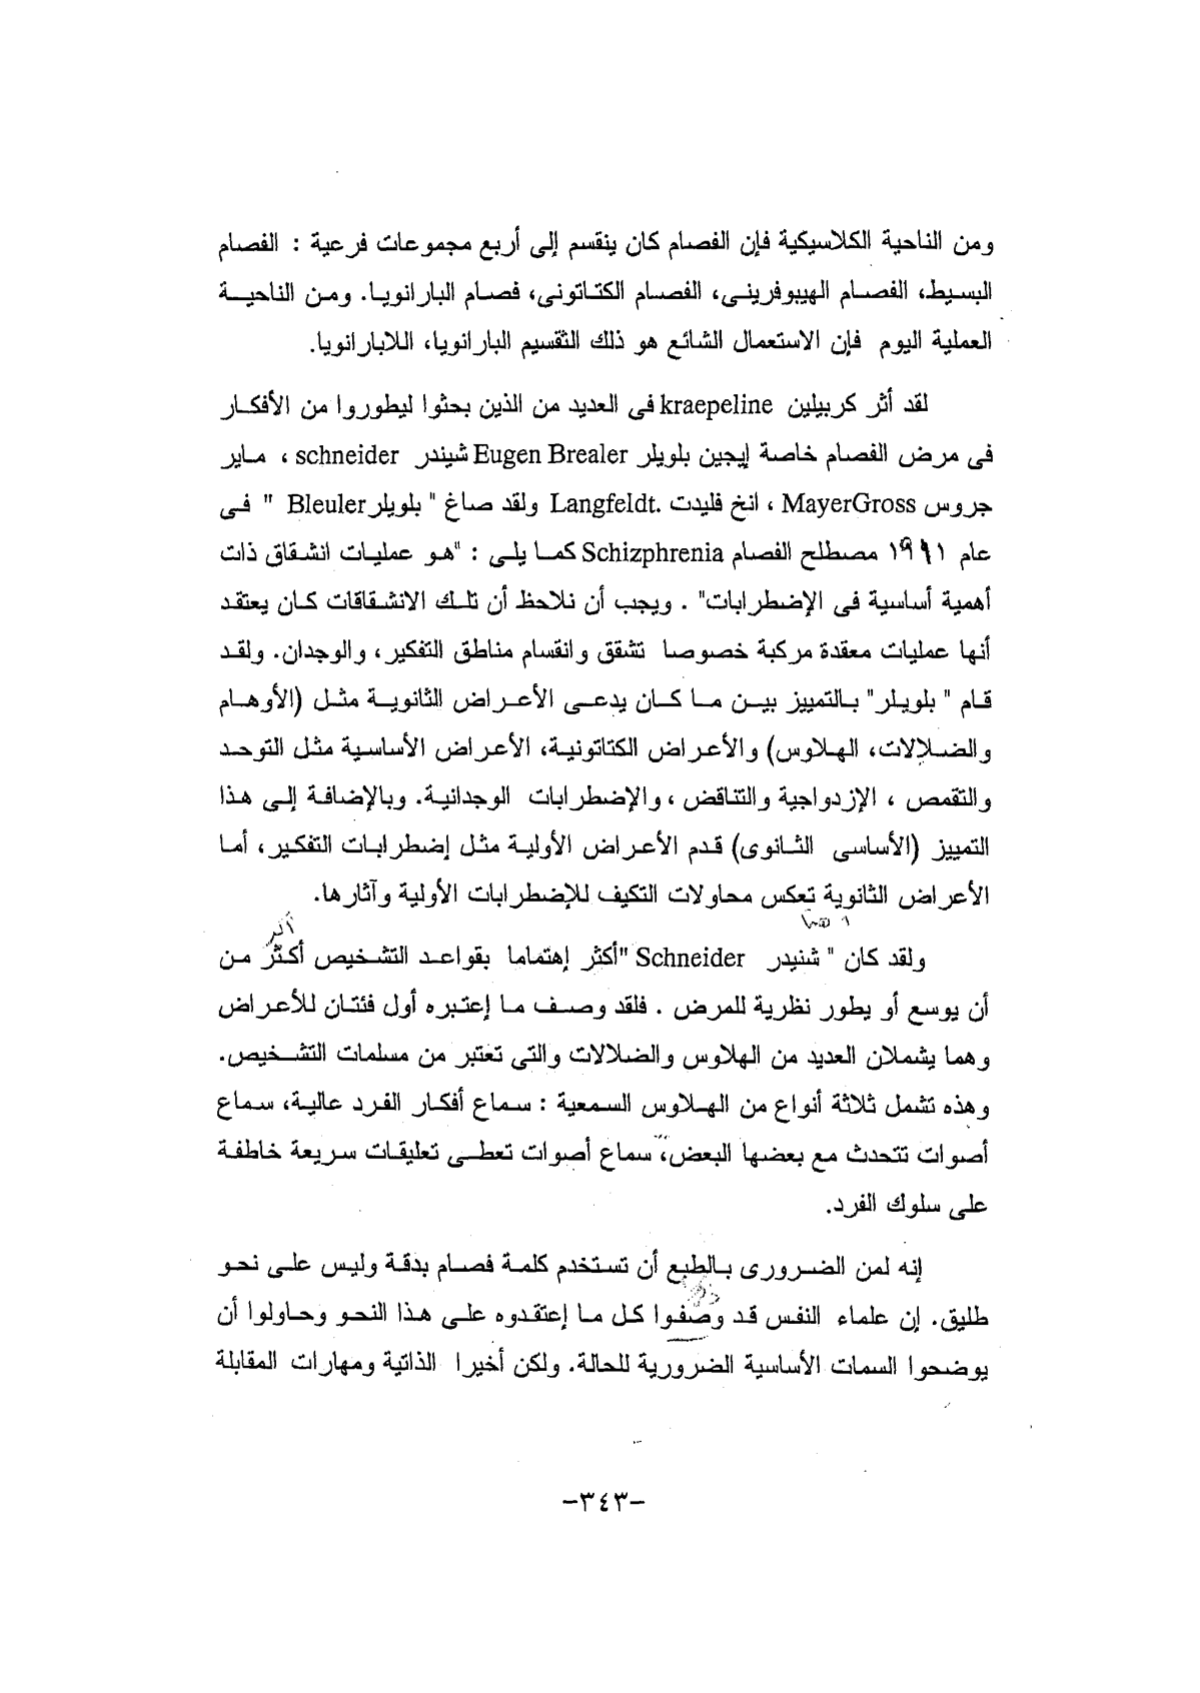 ومن الناحية الكلاسيكية فإن الفصام كان ينقسم إلى أربع مجموعات فرعية : الفصام
البسيط، الفصام الهيبوفرينى، الفصام الكتاتونى، فصام البارانويا. ومن الناحية
العملية اليوم فإن الاستعمال الشائع هو ذلك التقسيم البارانويا، اللابارانويا.
لقد أثر كربيلين kraepeline فى العديد من الذين بحثوا ليطوروا من الأفكار
فى مرض الفصام خاصة إيجين بلويلر Eugen Brealer شيندر schneider ، ماير
جروس MayerGross ، انخ فليدت Langfeldt. ولقد صاغ " بلويلر Bleuler " فى
عام ١٩١١ مصطلح الفصام Schizphrenia كما يلى : "هو عمليات انشقاق ذات
أهمية أساسية فى الإضطرابات" . ويجب أن نلاحظ أن تلك الانشقاقات كان يعتقد
أنها عمليات معقدة مركبة خصوصا تشقق وانقسام مناطق التفكير، والوجدان. ولقد
قام " بلويلر" بالتمييز بين ما كان يدعى الأعراض الثانوية مثل (الأوهام
والضلالات، الهلاوس) والأعراض الكتاتونية، الأعراض الأساسية مثل التوحد
والتقمص ، الإزدواجية والتناقض ، والإضطرابات الوجدانية. وبالإضافة إلى هذا
التمييز (الأساسى الثانوى) قدم الأعراض الأولية مثل إضطرابات التفكير، أما
الأعراض الثانوية تعكس محاولات التكيف للإضطرابات الأولية وآثارها.
ولقد كان " شنيدر Schneider "أكثر إهتماما بقواعد التشخيص أكثر من
أن يوسع أو يطور نظرية للمرض . فلقد وصف ما إعتبره أول فئتان للأعراض
وهما يشملان العديد من الهلاوس والضلالات والتى تعتبر من مسلمات التشخيص.
وهذه تشمل ثلاثة أنواع من الهلاوس السمعية : سماع أفكار الفرد عالية، سماع
أصوات تتحدث مع بعضها البعض، سماع أصوات تعطى تعليقات سريعة خاطفة
على سلوك الفرد.
إنه لمن الضرورى بالطبع أن تستخدم كلمة فصام بدقة وليس على نحو
طليق. إن علماء النفس قد وصفوا كل ما إعتقدوه على هذا النحو وحاولوا أن
يوضحوا السمات الأساسية الضرورية للحالة. ولكن أخيرا الذاتية ومهارات المقابلة
-٣٤٣-